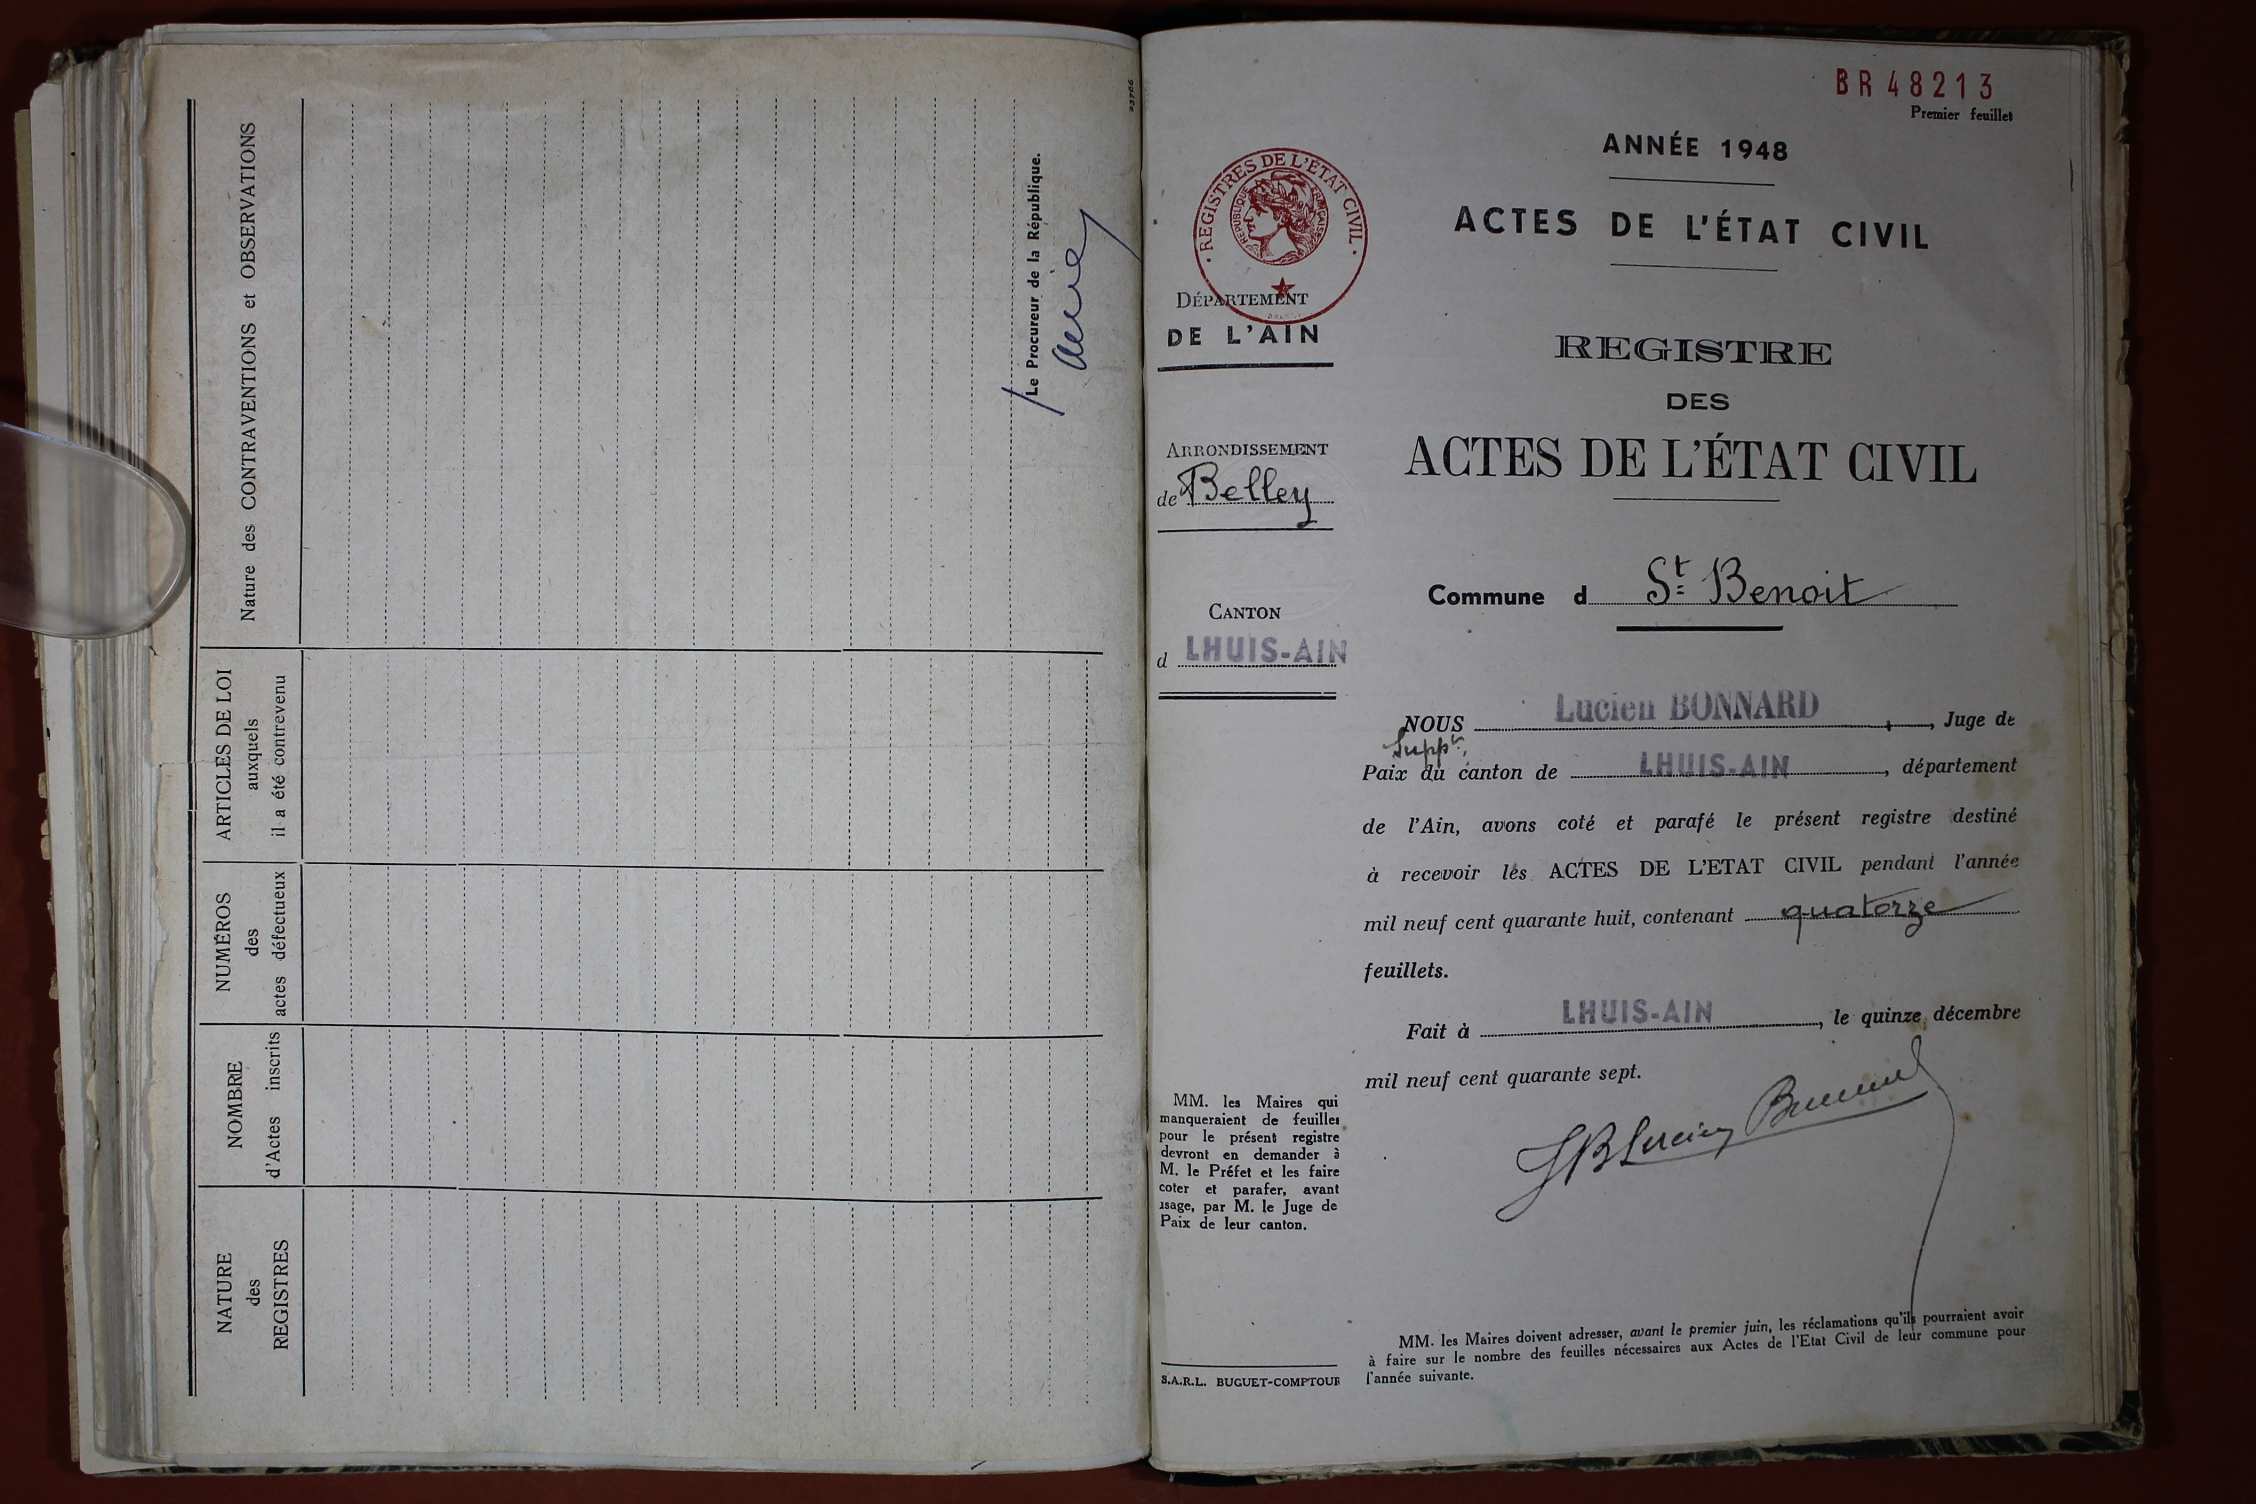 Nature des CONTRAVENTIONS et OBSERVATIONS
ARTICLES DE LOI
auxquels
il a été contrevenu
NUMÉROS
des
actes défectueux
NOMBRE
d'Actes inscrits
NATURE
des
REGISTRES
Le Procureur de la République.
23766
BR48213
Premier feuillet
ANNÉE 1948
ACTES DE L'ÉTAT CIVIL
· REGISTRES DE L'ETAT CIVIL ·
REPUBLIQUE FRANÇAISE
DÉPARTEMENT
DE L'AIN
REGISTRE
DES
ACTES DE L'ÉTAT CIVIL
ARRONDISSEMENT
de Belley
Commune d St Benoit
CANTON
d LHUIS-AIN
NOUS Lucien BONNARD, Juge de
Suppt,
Paix du canton de LHUIS-AIN, département
de l'Ain, avons coté et parafé le présent registre destiné
à recevoir les ACTES DE L'ETAT CIVIL pendant l'année
mil neuf cent quarante huit, contenant quatorze
feuillets.
Fait à LHUIS-AIN, le quinze décembre
mil neuf cent quarante sept.
MM. les Maires qui
manqueraient de feuilles
pour le présent registre
devront en demander à
M. le Préfet et les faire
coter et parafer, avant
usage, par M. le Juge de
Paix de leur canton.
S.A.R.L. BUGUET-COMPTOUR
MM. les Maires doivent adresser, avant le premier juin, les réclamations qu'ils pourraient avoir
à faire sur le nombre des feuilles nécessaires aux Actes de l'Etat Civil de leur commune pour
l'année suivante.